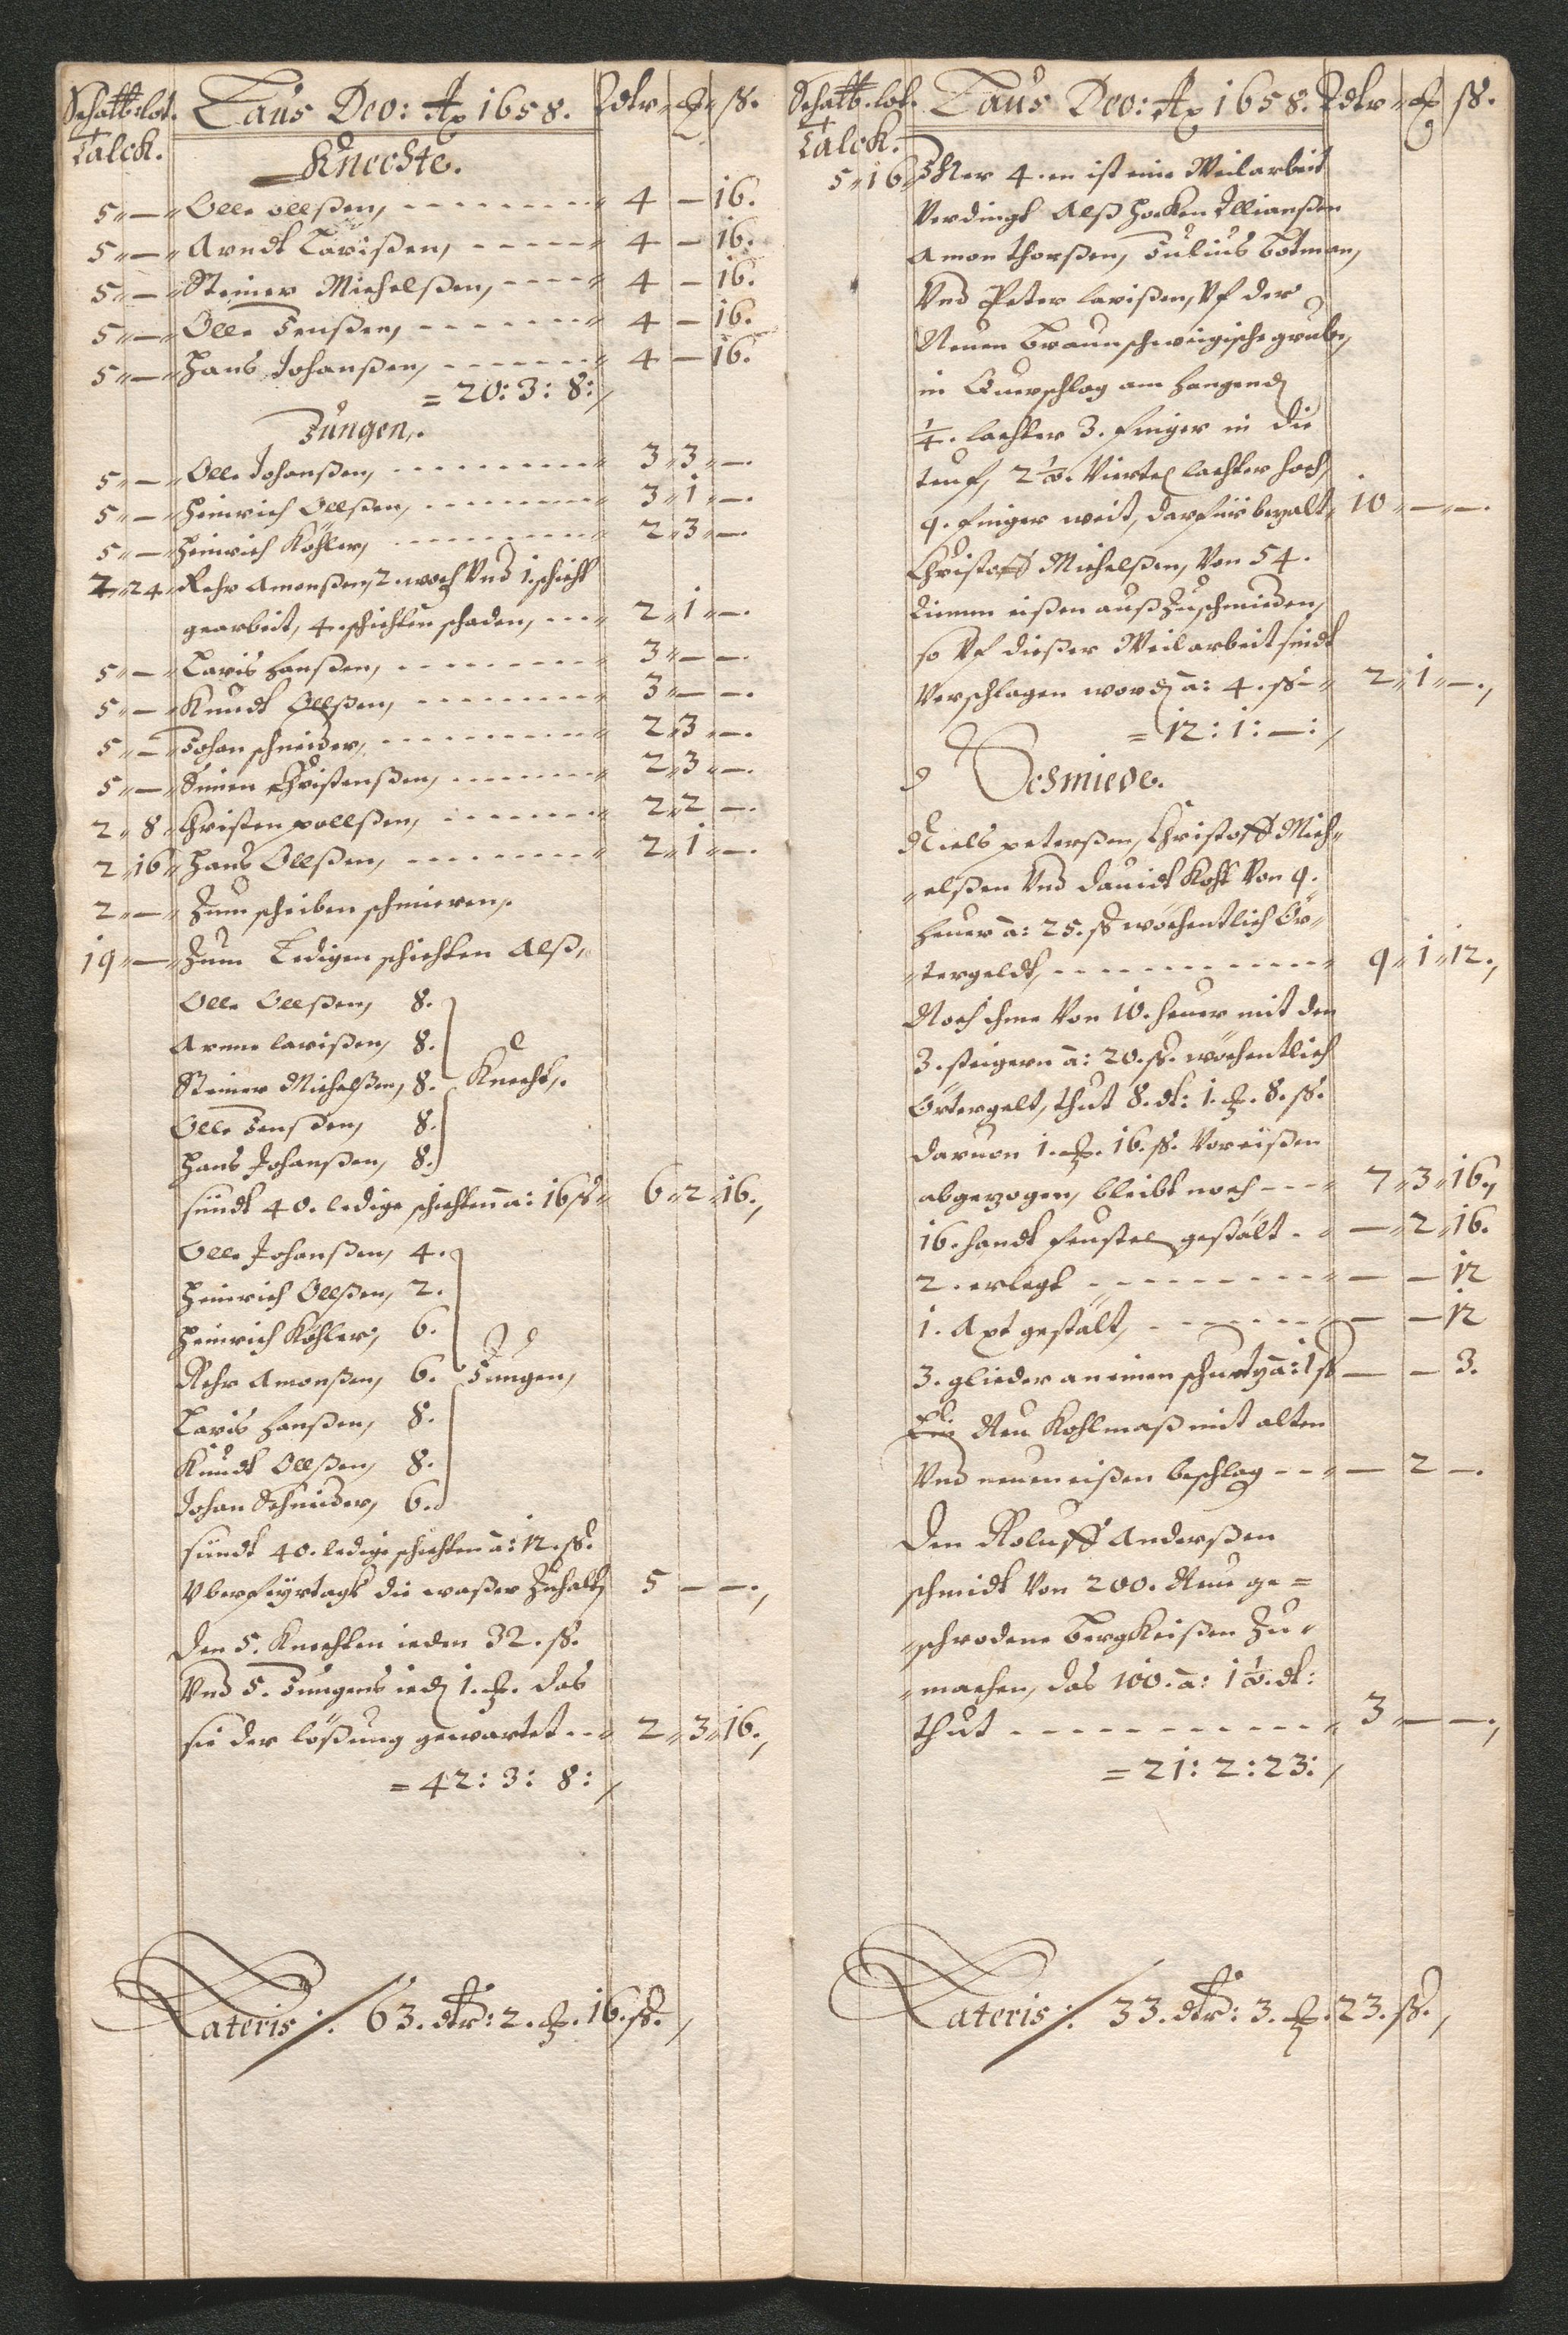 Schalb. lot. Laus Deo: Ao 1658. Rdtr ß.
Talck.
Knechte.
5 — Olle ollßen, 4 — 16.
5 — Arndt Larißen, 4 — 16.
5 — Steiner Michelßen, 4 — 16.
5 — Olle Jenßen, 4 — 16.
5 — Hans Johanßen, 4 — 16.
= 20: 3: 8:
Jungen.
5 — Olle Johanßen, 3 3 —
5 — Heinrich Ollßen, 3 1 —
5 — Heinrich Köhler, 2 3 —
2 24 Rehr Amonßen, 2. woch Vnd 1. schicht
gearbeit, 4. schichten schaden, 2 1 —
5 — Laris Hanßen, 3 — —
5 — Knudt Ollßen, 3 — —
5 — Johan schneider, 2 3 —
5 — Simen Christenßen, 2 3 —
2 8 Christen pollßen, 2 2 —
2 16 Hans Ollßen, 2 1 —
2 — Zum scheiben schmieren,
19 — Zum Ledigen schichten Alß,
Olle Ollßen, 8.
Arnne larißen, 8.
Steiner Michelßen, 8. Knecht,
Olle Jenßen, 8.
Hans Johanßen, 8.
sündt 40. ledige schichten a: 16 ß 6 2 16.
Olle Johanßen, 4.
Heinrich Ollßen, 2.
Heinrich Köhler, 6.
Rehr Amonßen, 6. Jungen,
Laris Hanßen, 8.
Knudt Ollßen, 8.
Johan Schneider, 6.
sündt 40. ledige schichten a: 12. ß.
Vber feyrtagk die waßer Zuhalt 5 — —
Den 5. Knechten ieden 32. ß.
Vnd 5. Jungens ied 1. das
sie der lößung gewartet 2 3 16.
= 42: 3: 8:
Lateris: 63. dtr: 2. 16. ß.
Schalb. lot. Laus Deo: Ao 1658. Rdtr ß.
Talck.
5 16 4. en ist eine Weilarbeit
Verdingt Alß Hocken Illianßen
Amon Thorßen, Julius Botman,
Vnd Peter larißen, Vf der
Neuen Braunschweigische grube,
in Querschlag am Hangend
1/4. lachter 3. finger in die
teuf, 2 1/2. Viertel lachter hoch,
9. finger weit, darfür bezalt 10 — —
Christoff Michelßen, Von 54.
Riemm eißen auß Zuschmieden,
so Vf dießer Weilarbeit sindt
Verschlagen word a: 4. ß 2 1 —
= 12: 1: —:
Schmiede.
Niels peterßen, Christoff Mich-
elßen Vnd dauidt Kohl Von 9.
heuer a: 25. ß wöchentlich Ör-
tergeldt, 9 1 12.
Noch ihme Von 10. heuer mit den
3. steigern a: 20. ß. wöchentlich
Örtergelt, thut 8. dt: 1. 8. ß.
daruon 1. 16. ß. Vor eißen
abgezogen, bleibt noch 7 3 16.
16. handt feustel gestält — 2 16.
2. erlegt — — 12
1. Axt gestält, — — 12
3. glieder an einen schurtz a: 1 ß — — 3.
Ein Neu Kohlmaß mit alten
Vnd neuen eißen beschlag — 2 —
Den Roluff Anderßen
schmidt Von 200. Neu ge=
schrodene Bergkeißen Zu
machen, das 100. a: 1 1/2. dt:
thut 3 — —
= 21: 2: 23:
Lateris: 33. dtr: 3. 23. ß.